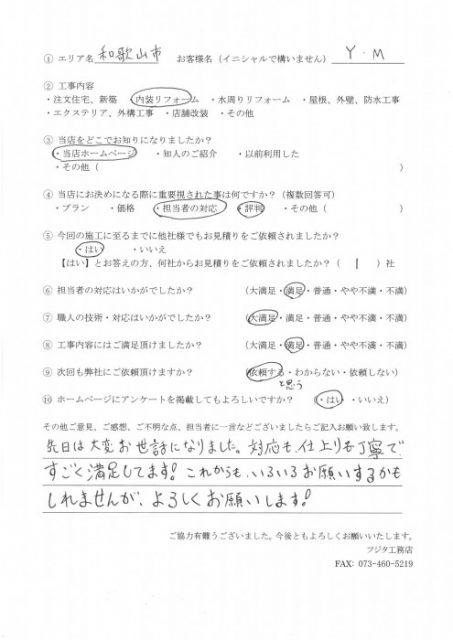 ① エリア名 和歌山市 お客様名（イニシャルで構いません） Y・M
② 工事内容
・注文住宅、新築 ・内装リフォーム ・水周りリフォーム ・屋根、外壁、防水工事
・エクステリア、外構工事 ・店舗改装 ・その他
③ 当店をどこでお知りになりましたか？
・当店ホームページ ・知人のご紹介 ・以前利用した
・その他（ ）
④ 当店にお決めになる際に重要視された事は何ですか？（複数回答可）
・プラン ・価格 ・担当者の対応 ・評判 ・その他（ ）
⑤ 今回の施工に至るまでに他社様でもお見積りをご依頼されましたか？
・はい ・いいえ
【はい】とお答えの方、何社からお見積りをご依頼されましたか？（ 1 ）社
⑥ 担当者の対応はいかがでしたか？ （大満足・満足・普通・やや不満・不満）
⑦ 職人の技術・対応はいかがでしたか？ （大満足・満足・普通・やや不満・不満）
⑧ 工事内容にはご満足頂けましたか？ （大満足・満足・普通・やや不満・不満）
⑨ 次回も弊社にご依頼頂けますか？ （依頼する・わからない・依頼しない）
と思う
⑩ ホームページにアンケートを掲載してもよろしいですか？ （・はい・いいえ）
その他ご意見、ご感想、ご不明な点、担当者に一言などございましたらご記入お願い致します。
先日は大変お世話になりました。対応も、仕上りも丁寧で
すごく満足してます！これからも、いろいろお願いするかも
しれませんが、よろしくお願いします！
ご協力有難うございました。今後ともよろしくお願いいたします。
フジタ工務店
FAX: 073-460-5219